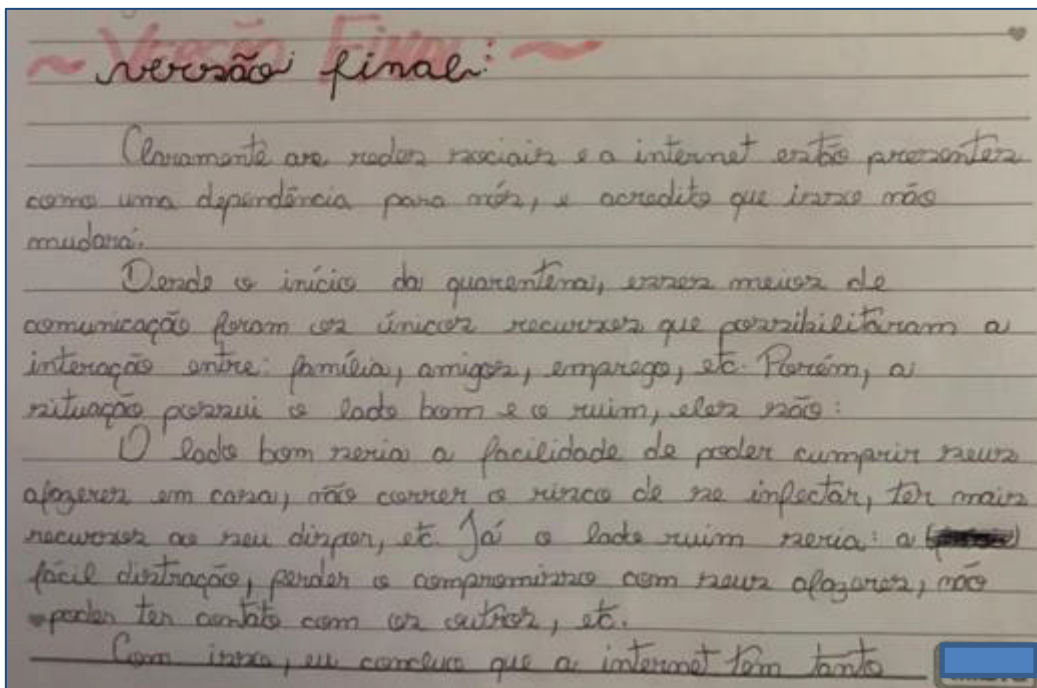 ~ Versão Final: ~
versão final:
Claramente as redes sociais e a internet estão presentes
como uma dependência para nós, e acredito que isso não
mudará.
Desde o início da quarentena, esses meios de
comunicação foram os únicos recursos que possibilitaram a
interação entre: família, amigos, emprego, etc. Porém, a
situação possui o lado bom e o ruim, eles são:
O lado bom seria a facilidade de poder cumprir seus
afazeres em casa, não correr o risco de se infectar, ter mais
recursos ao seu dispor, etc. Já o lado ruim seria: a
fácil distração, perder o compromisso com seus afazeres, não
poder ter contato com os outros, etc.
Com isso, eu concluo que a internet tem tanto